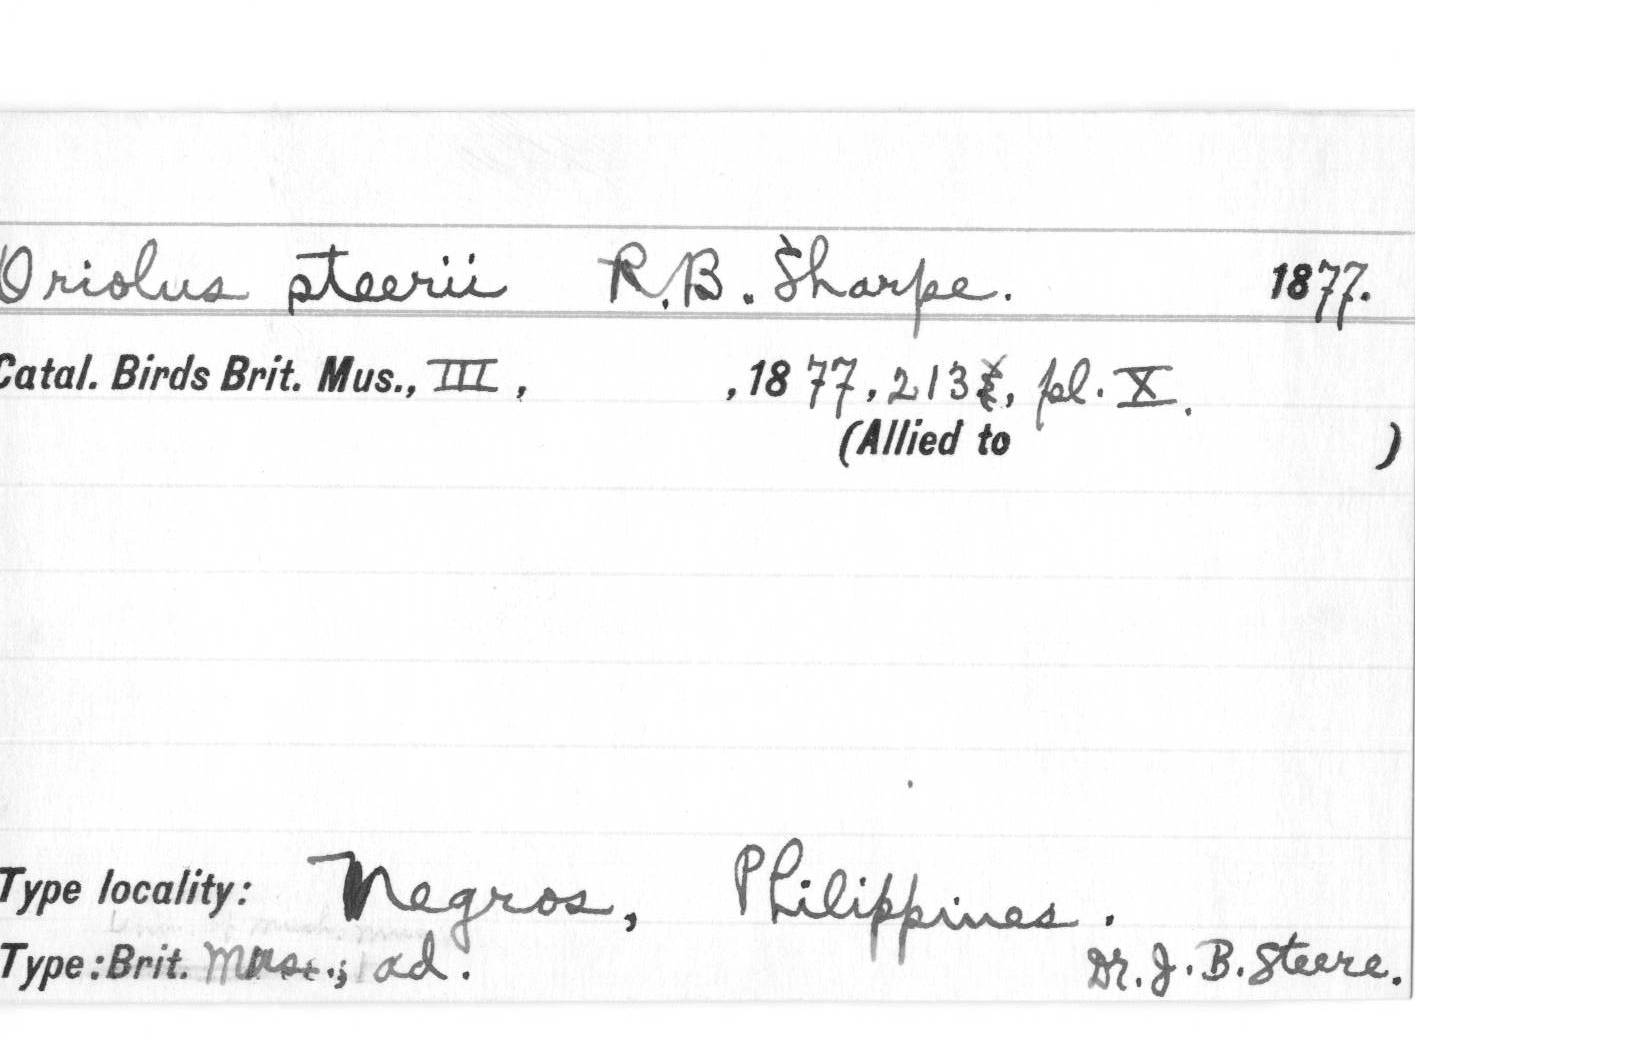 Oriolus steerii R.B. Sharpe. 1877.
Catal. Birds Brit. Mus., III, , 1877, 213, pl. X.
(Allied to )
Type locality: Negros, Philippines.
Type: Brit. Mus.; ad. Dr. J. B. Steere.